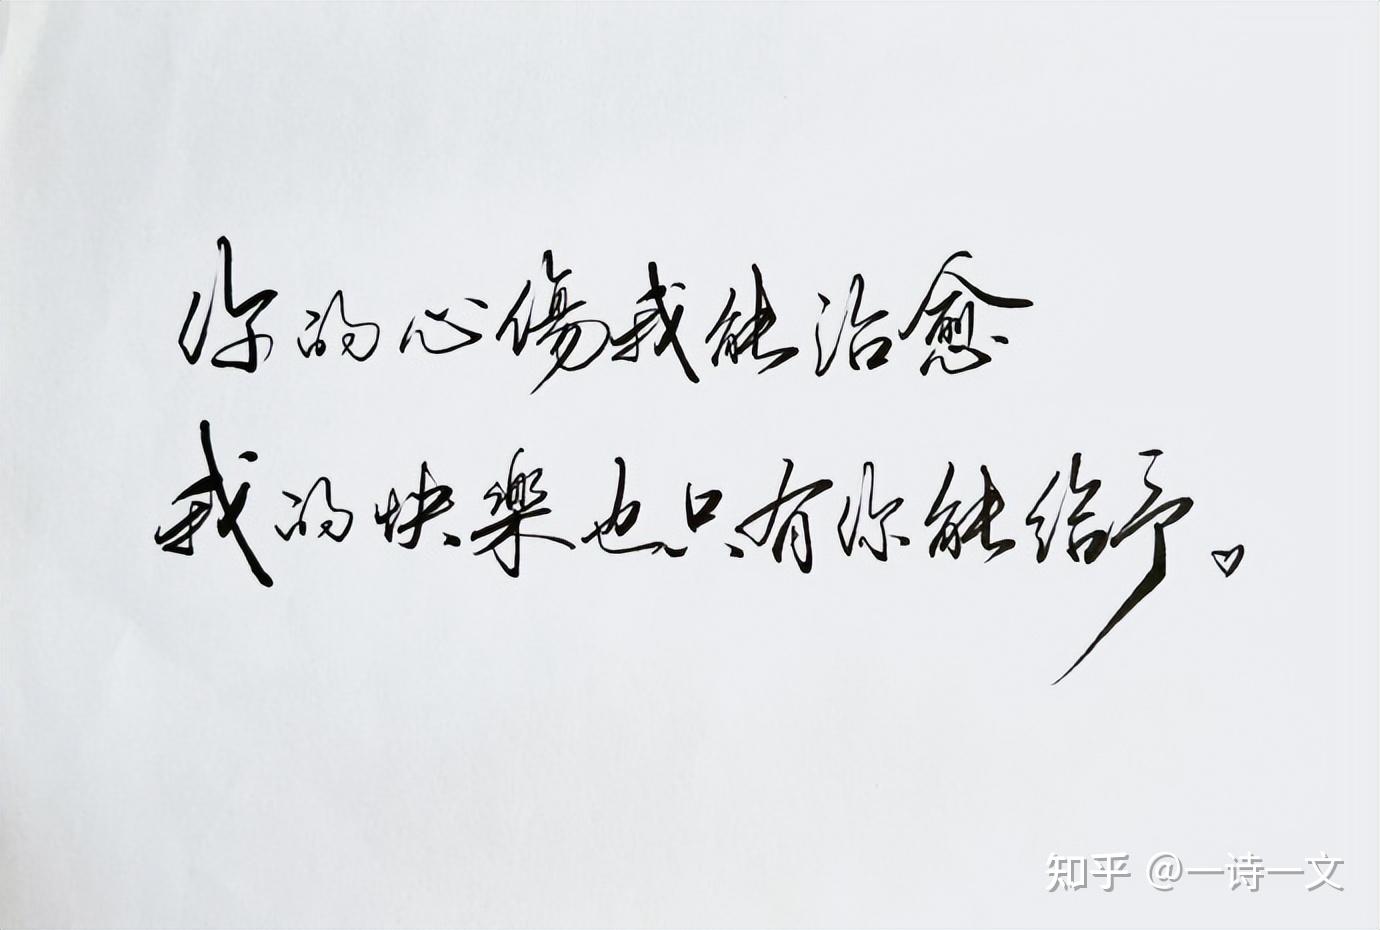 你的心傷我能治愈
我的快樂也只有你能给予。
知乎 @一诗一文